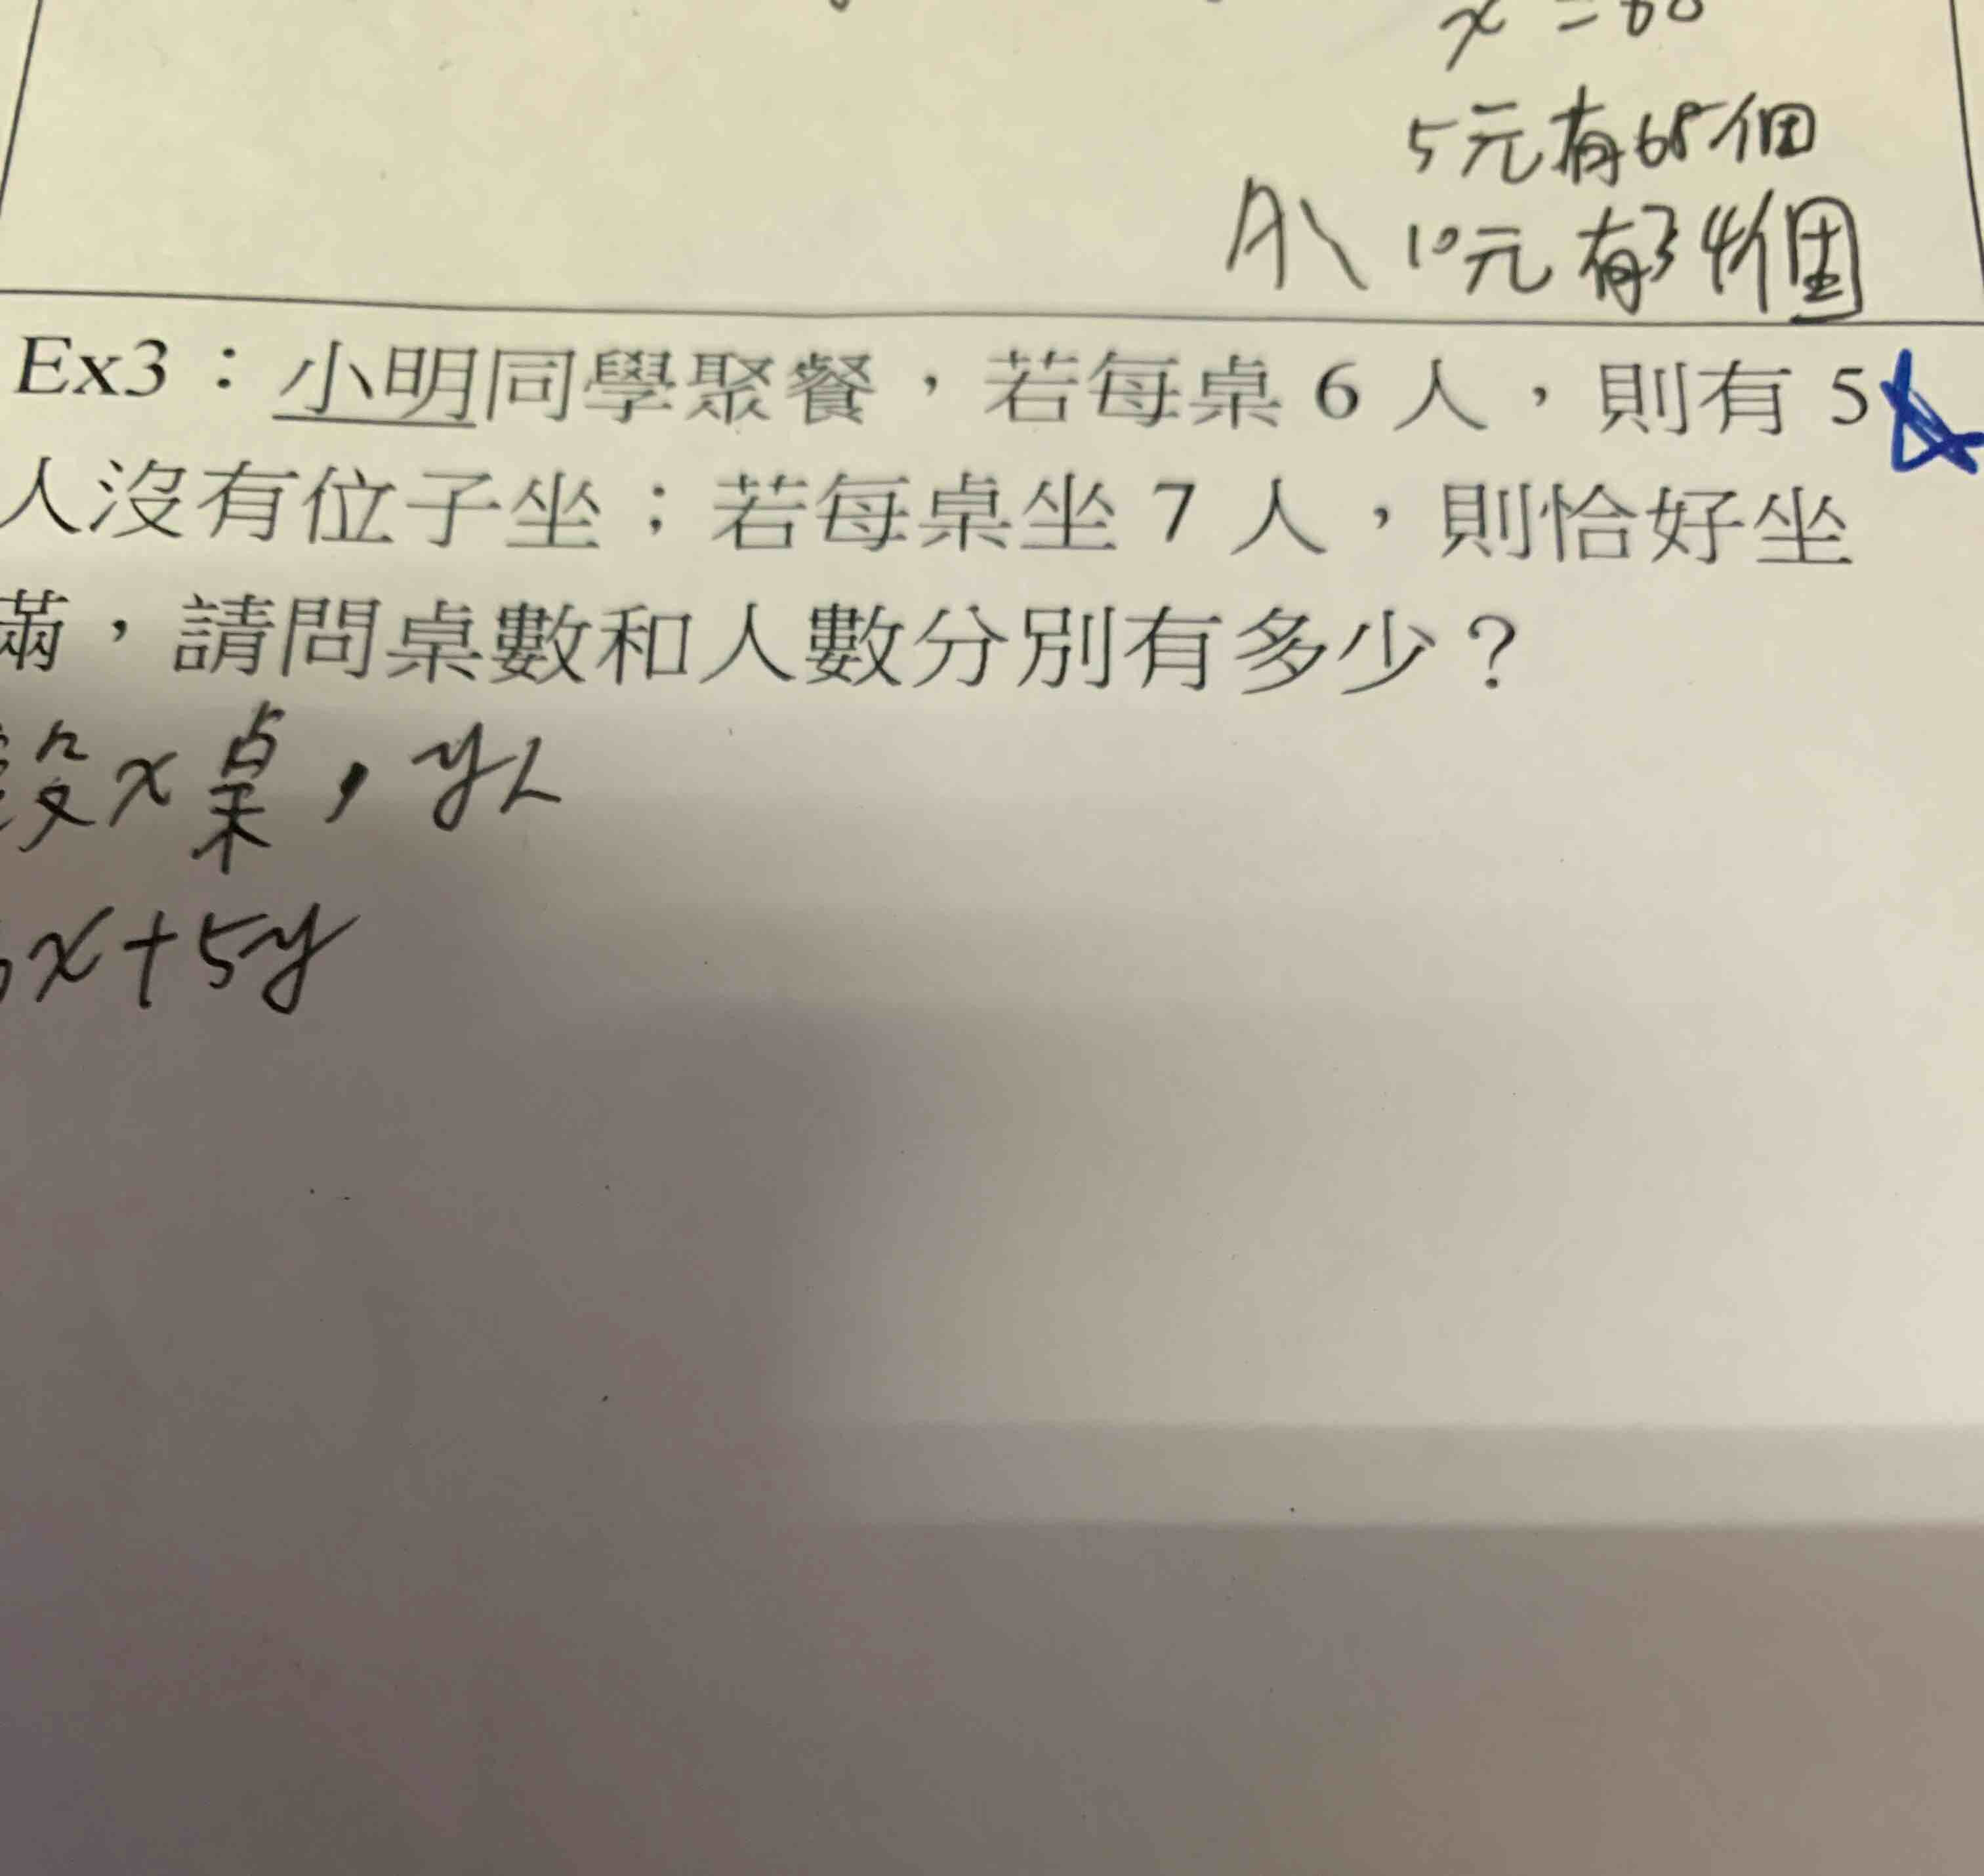 x = 68
5元有68個
A、10元有34個
Ex3：小明同學聚餐，若每桌 6 人，則有 5
人沒有位子坐；若每桌坐 7 人，則恰好坐
滿，請問桌數和人數分別有多少？
設x桌，y人
6x+5y